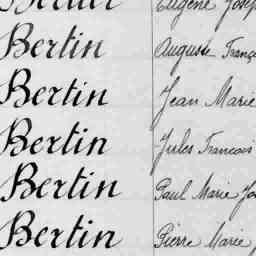 Eugène Joseph
Bertin Auguste Franço
Bertin Jean Marie
Bertin Jules Francois
Bertin Paul Marie Jo
Bertin Pierre Marie J